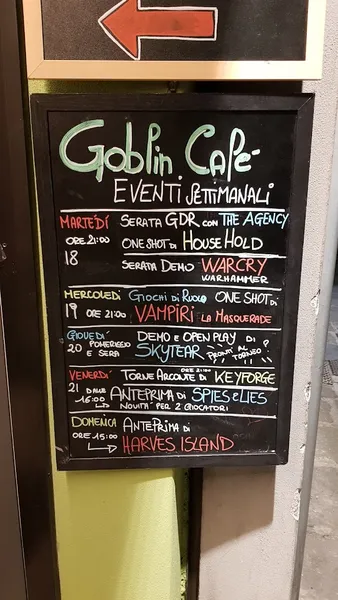 Goblin Café
EVENTI SETTIMANALI
MARTEDÍ SERATA GDR CON THE AGENCY
ORE 21:00 ONE SHOT DI HOUSEHOLD
18
SERATA DEMO WARCRY
WARHAMMER
MERCOLEDÍ GIOCHI DI RUOLO ONE SHOT DI
19 ORE 21:00 VAMPIRI LA MASQUERADE
GIOVEDÍ DEMO E OPEN PLAY DI
20 POMERIGGIO E SERA SKYTEAR PRONTI AL TORNEO?
VENERDÍ ORE 21:00
21 TORNEO ARCONTE DI KEYFORGE
DALLE 16:00 ANTEPRIMA DI SPIES & LIES
NOVITÁ PER 2 GIOCATORI
DOMENICA ANTEPRIMA DI
ORE 15:00 HARVES ISLAND